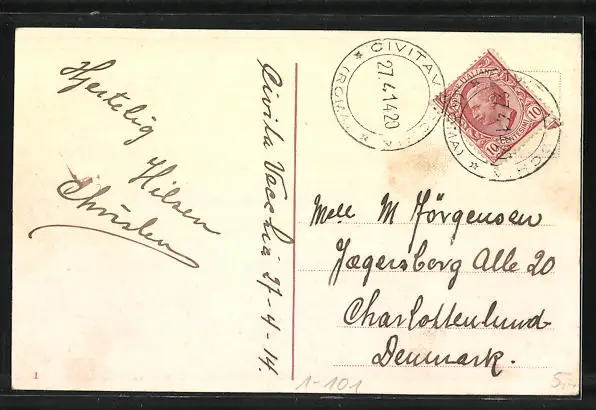 Hjertelig
Hilsen
Christen
Civita Vecchia 27-4-14.
CIVITAV
(ROMA)
27.4.14 20
10
10
Mell M Jörgensen
Jægersborg Alle 20
Charlottenlund
Denmark.
1
1-101
5,-